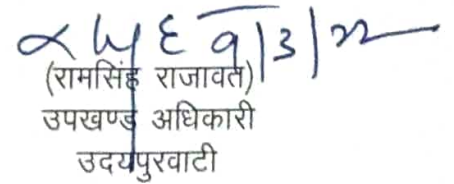 9/3/22
(रामसिंह राजावत)
उपखण्ड अधिकारी
उदयपुरवाटी